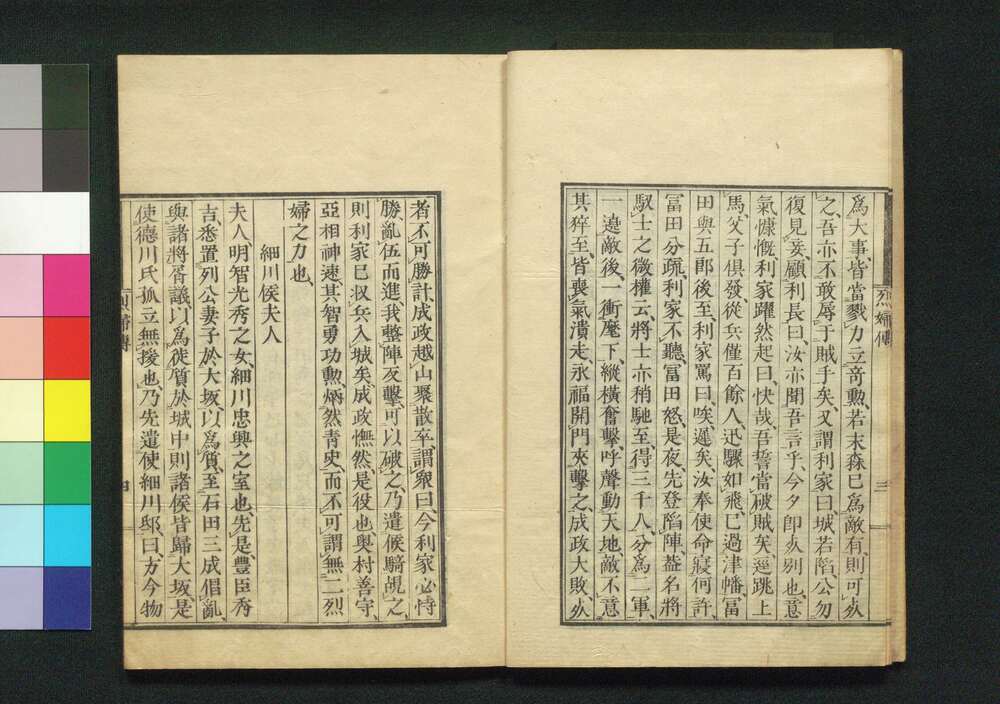 爲大事、皆當戮力立奇勲、若末森已爲敵有、則可死
之、吾亦不敢辱于賊手矣、又謂利家曰、城若陷、公勿
復見妾、顧利長曰、汝亦聞吾言乎、今夕卽死別也、意
氣慷慨、利家躍然起曰、快哉、吾誓當破賊矣、逕跳上
馬、父子倶發、從兵僅百餘人、迅驟如飛、已過津幡、冨
田與五郎後至、利家罵曰、唉遲矣、汝奉使命寢何許、
冨田分疏、利家不聽、冨田怒、是夜先登陷陣、蓋名將
馭士之微權云、將士亦稍馳至、得三千人、分爲二軍、
一遶敵後、一衝麾下、縱橫奮擊、呼聲動天地、敵不意
其猝至、皆喪氣潰走、永福開門夾擊之、成政大敗、死
烈婦傳
三
者不可勝計、成政越山聚散卒、謂衆曰、今利家必恃
勝亂伍而進、我整陣反擊、可以破之、乃遣候騎覘之、
則利家已収兵入城矣、成政憮然、是役也、奥村善守、
亞相神速、其智勇功勲、炳然靑史、而不可謂無二烈
婦之力也、
細川侯夫人
夫人、明智光秀之女、細川忠興之室也、先是、豐臣秀
吉、悉置列公妻子於大坂、以爲質、至石田三成倡亂、
與諸將胥議、以爲徙質於城中、則諸侯皆歸大坂、是
使德川氏孤立無援也、乃先遣使細川邸曰、方今物
烈婦傳